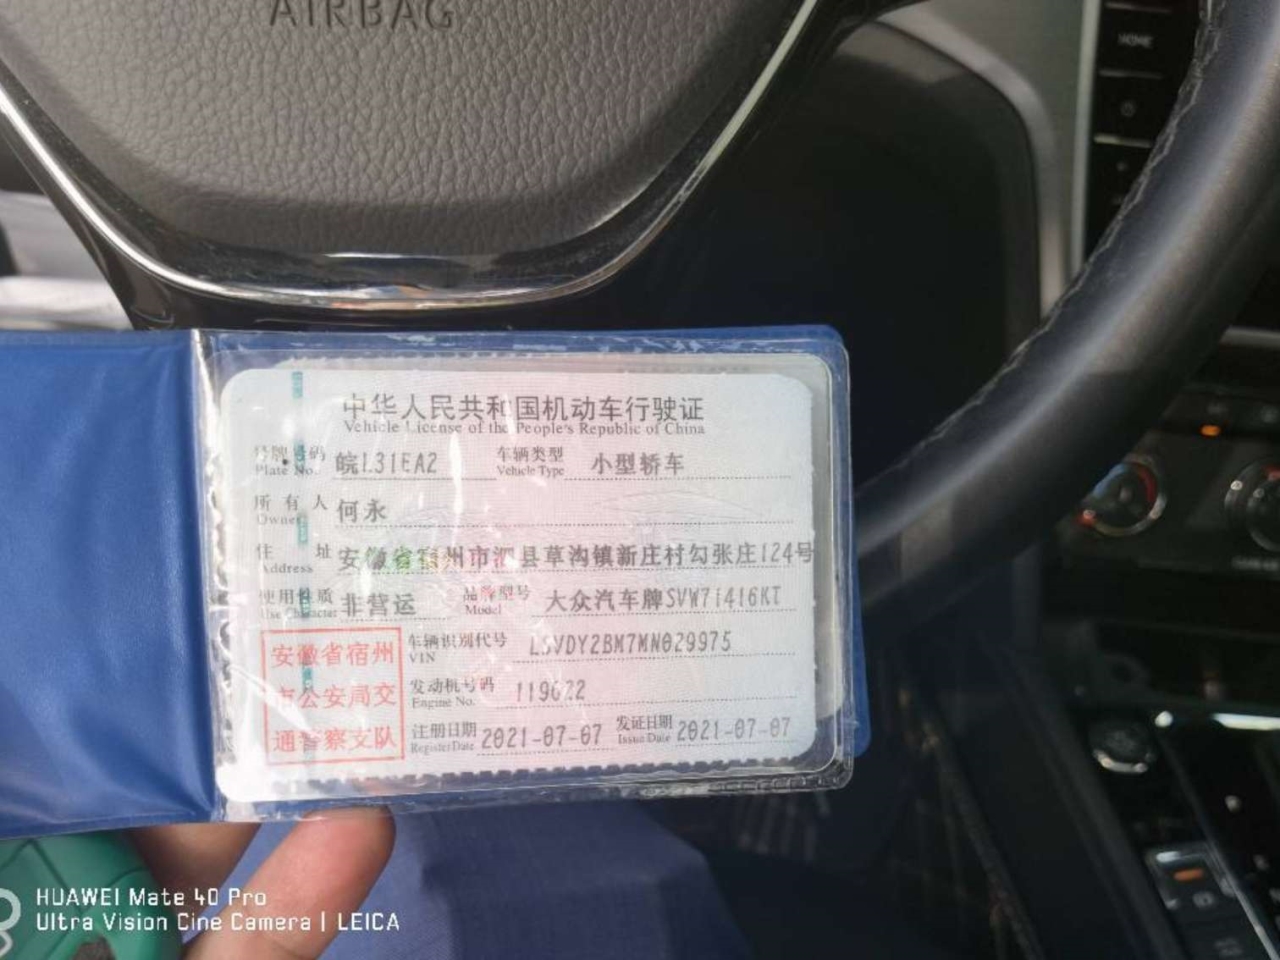 AIRBAG
HOME
中华人民共和国机动车行驶证
Vehicle License of the People's Republic of China
号牌号码 皖L31EA2 车辆类型 小型轿车
Plate No. Vehicle Type
所有人 何永
Owner
住址 安徽省宿州市泗县草沟镇新庄村勾张庄124号
Address
使用性质 非营运 品牌型号 大众汽车牌SVW71416KT
Use Character Model
安徽省宿州
市公安局交
通警察支队
车辆识别代号 LSVDY2BM7MN029975
VIN
发动机号码
Engine No.
注册日期 2021-07-07 发证日期 2021-07-07
Register Date Issue Date
HUAWEI Mate 40 Pro
Ultra Vision Cine Camera | LEICA